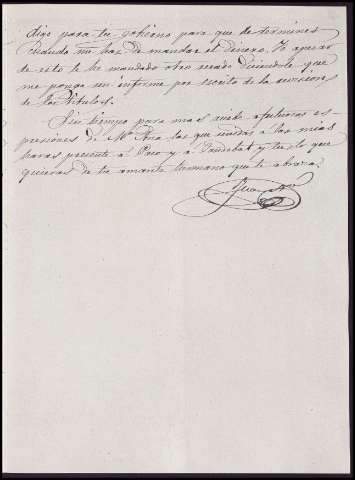 digo para tu gobierno para que determines
cuando me has de mandar el dinero. Yo apesar
de esto le he mandado otro recado diciendole que
me ponga un informe por escrito de la revision
de los titulos.
Sin tiempo para mas recibe afectuosas es-
presiones de Mª Ana las que unidas a las mias
haras presente a Paco y a y tu lo que
quieras de tu amante hermano que te abraza.
Juan